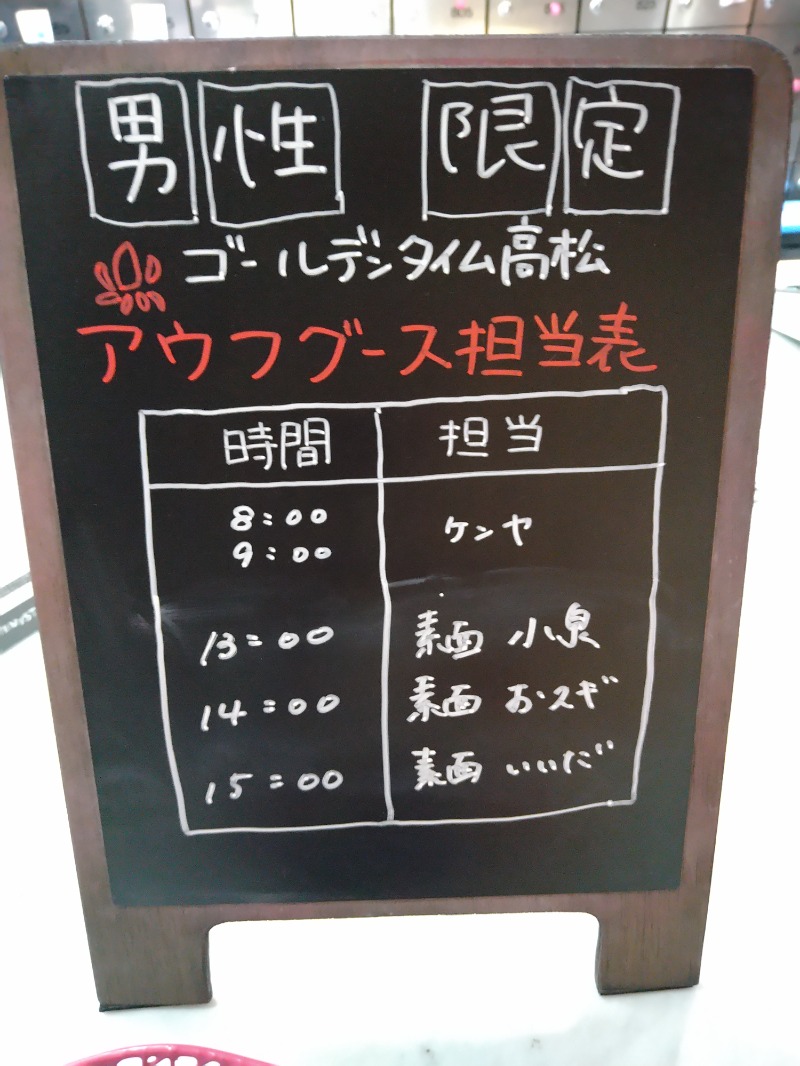 男性 限定
ゴールデンタイム高松
アウフグース担当表
時間 担当
8:00
9:00 ケンヤ
13:00 素面 小泉
14:00 素面 おスギ
15:00 素面 いいだ